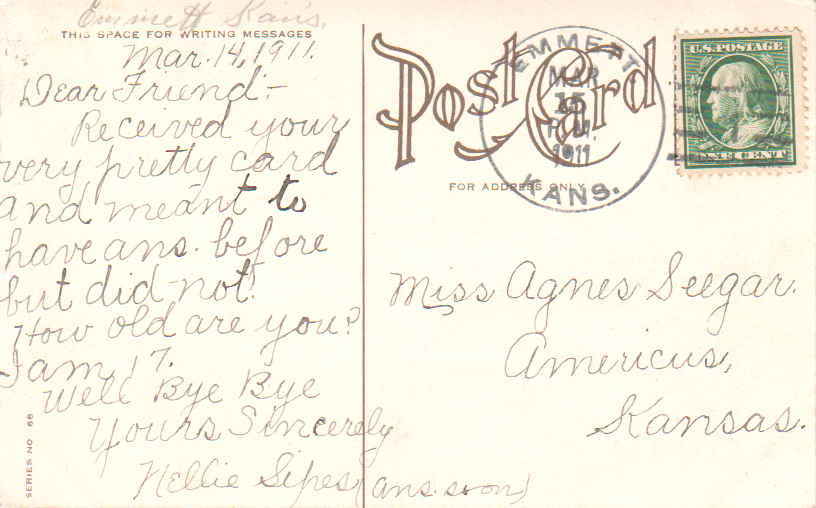 Emmett Kans.
THIS SPACE FOR WRITING MESSAGES
Mar. 14, 1911.
Dear Friend:-
Received your
very pretty card
and meant to
have ans. before
but did not!
How old are you?
I am 17.
Well Bye Bye
Yours Sincerely
Nellie Sipes (ans. soon)
SERIES NO 68
Post Card
FOR ADDRESS ONLY
EMMETT
MAR
15
P.M.
1911
KANS.
U.S. POSTAGE
ONE CENT
Miss Agnes Seegar.
Americus,
Kansas.